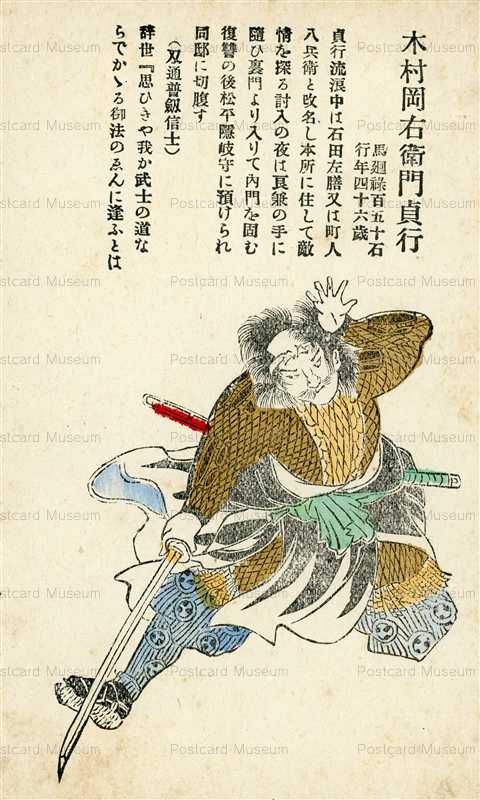 木村岡右衛門貞行
馬廻祿百五十石
行年四十六歲
貞行流浪中は石田左膳又は町人
八兵衛と改名し本所に住して敵
情を探る討入の夜は良雄の手に
隨ひ裏門より入りて內門を固む
復讐の後松平隱岐守に預けられ
同邸に切腹す
(双通普劔信士)
辭世『思ひきや我か武士の道な
らでかゝる御法のゑんに逢ふとは
Postcard Museum